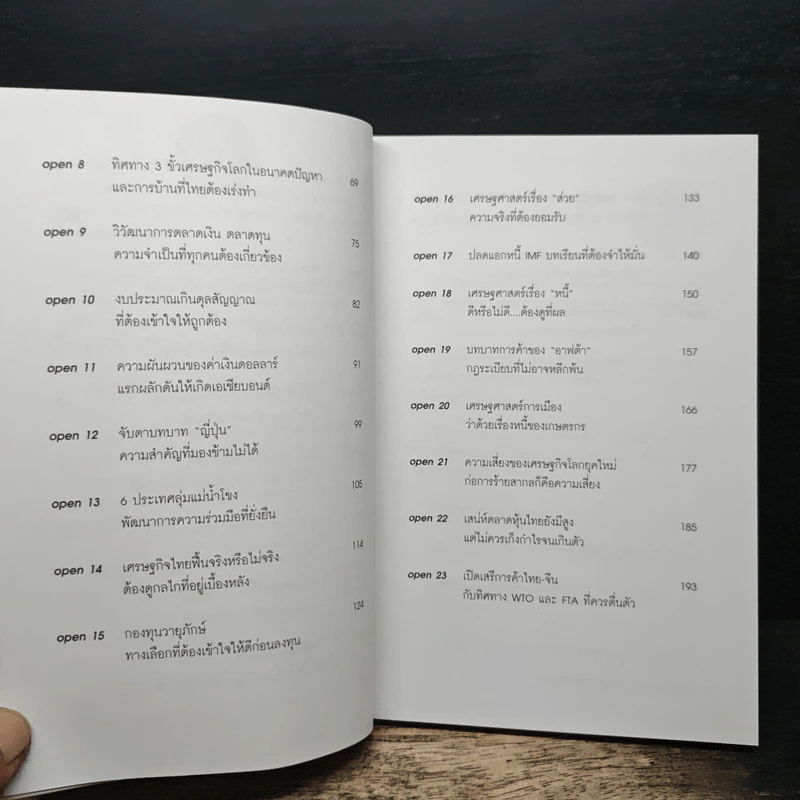 open 8 ทิศทาง 3 ขั้วเศรษฐกิจโลกในอนาคตปัญหา
และการบ้านที่ไทยต้องเร่งทำ 69
open 9 วิวัฒนาการตลาดเงิน ตลาดทุน
ความจำเป็นที่ทุกคนต้องเกี่ยวข้อง 75
open 10 งบประมาณเกินดุลสัญญาณ
ที่ต้องเข้าใจให้ถูกต้อง 82
open 11 ความผันผวนของค่าเงินดอลลาร์ 91
แรกผลักดันให้เกิดเอเชียบอนด์
open 12 จับตาบทบาท "ญี่ปุ่น" 99
ความสำคัญที่มองข้ามไม่ได้
open 13 6 ประเทศลุ่มแม่น้ำโขง 105
พัฒนาการความร่วมมือที่ยั่งยืน
open 14 เศรษฐกิจไทยฟื้นจริงหรือไม่จริง 114
ต้องดูกลไกที่อยู่เบื้องหลัง
open 15 กองทุนวายุภักษ์ 124
ทางเลือกที่ต้องเข้าใจให้ดีก่อนลงทุน
open 16 เศรษฐศาสตร์เรื่อง "ส่วย" 133
ความจริงที่ต้องยอมรับ
open 17 ปลดแอกหนี้ IMF บทเรียนที่ต้องจำให้มั่น 140
open 18 เศรษฐศาสตร์เรื่อง "หนี้" 150
ดีหรือไม่ดี....ต้องดูที่ผล
open 19 บทบาทการค้าของ "อาฟต้า" 157
กฎระเบียบที่ไม่อาจหลีกพ้น
open 20 เศรษฐศาสตร์การเมือง 166
ว่าด้วยเรื่องหนี้ของเกษตรกร
open 21 ความเสี่ยงของเศรษฐกิจโลกยุคใหม่ 177
ก่อการร้ายสากลก็คือความเสี่ยง
open 22 เสน่ห์ตลาดหุ้นไทยยังมีสูง 185
แต่ไม่ควรเก็งกำไรจนเกินตัว
open 23 เปิดเสรีการค้าไทย-จีน 193
กับทิศทาง WTO และ FTA ที่ควรตื่นตัว